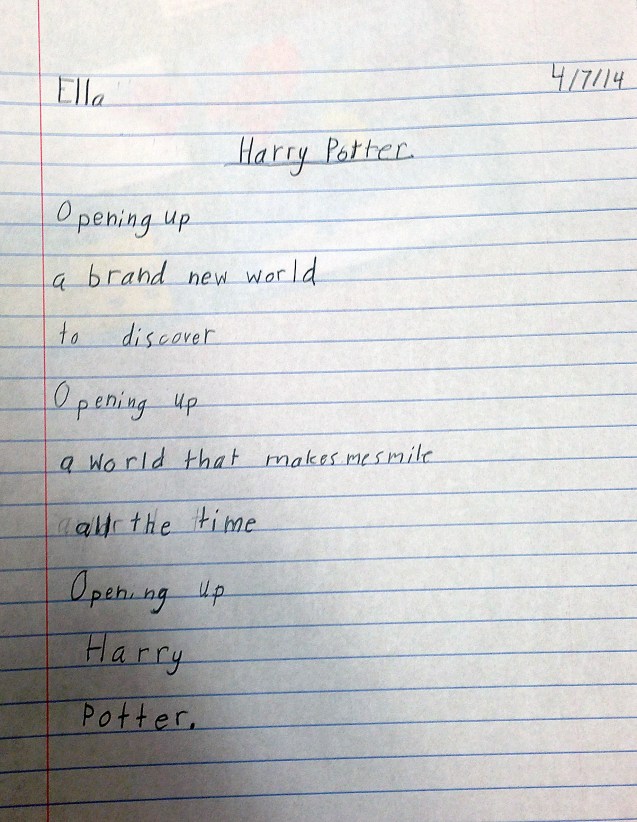 Ella 4/7/14
Harry Potter
Opening up
a brand new world
to discover
Opening up
a world that makes me smile
all the time
Opening up
Harry
Potter.